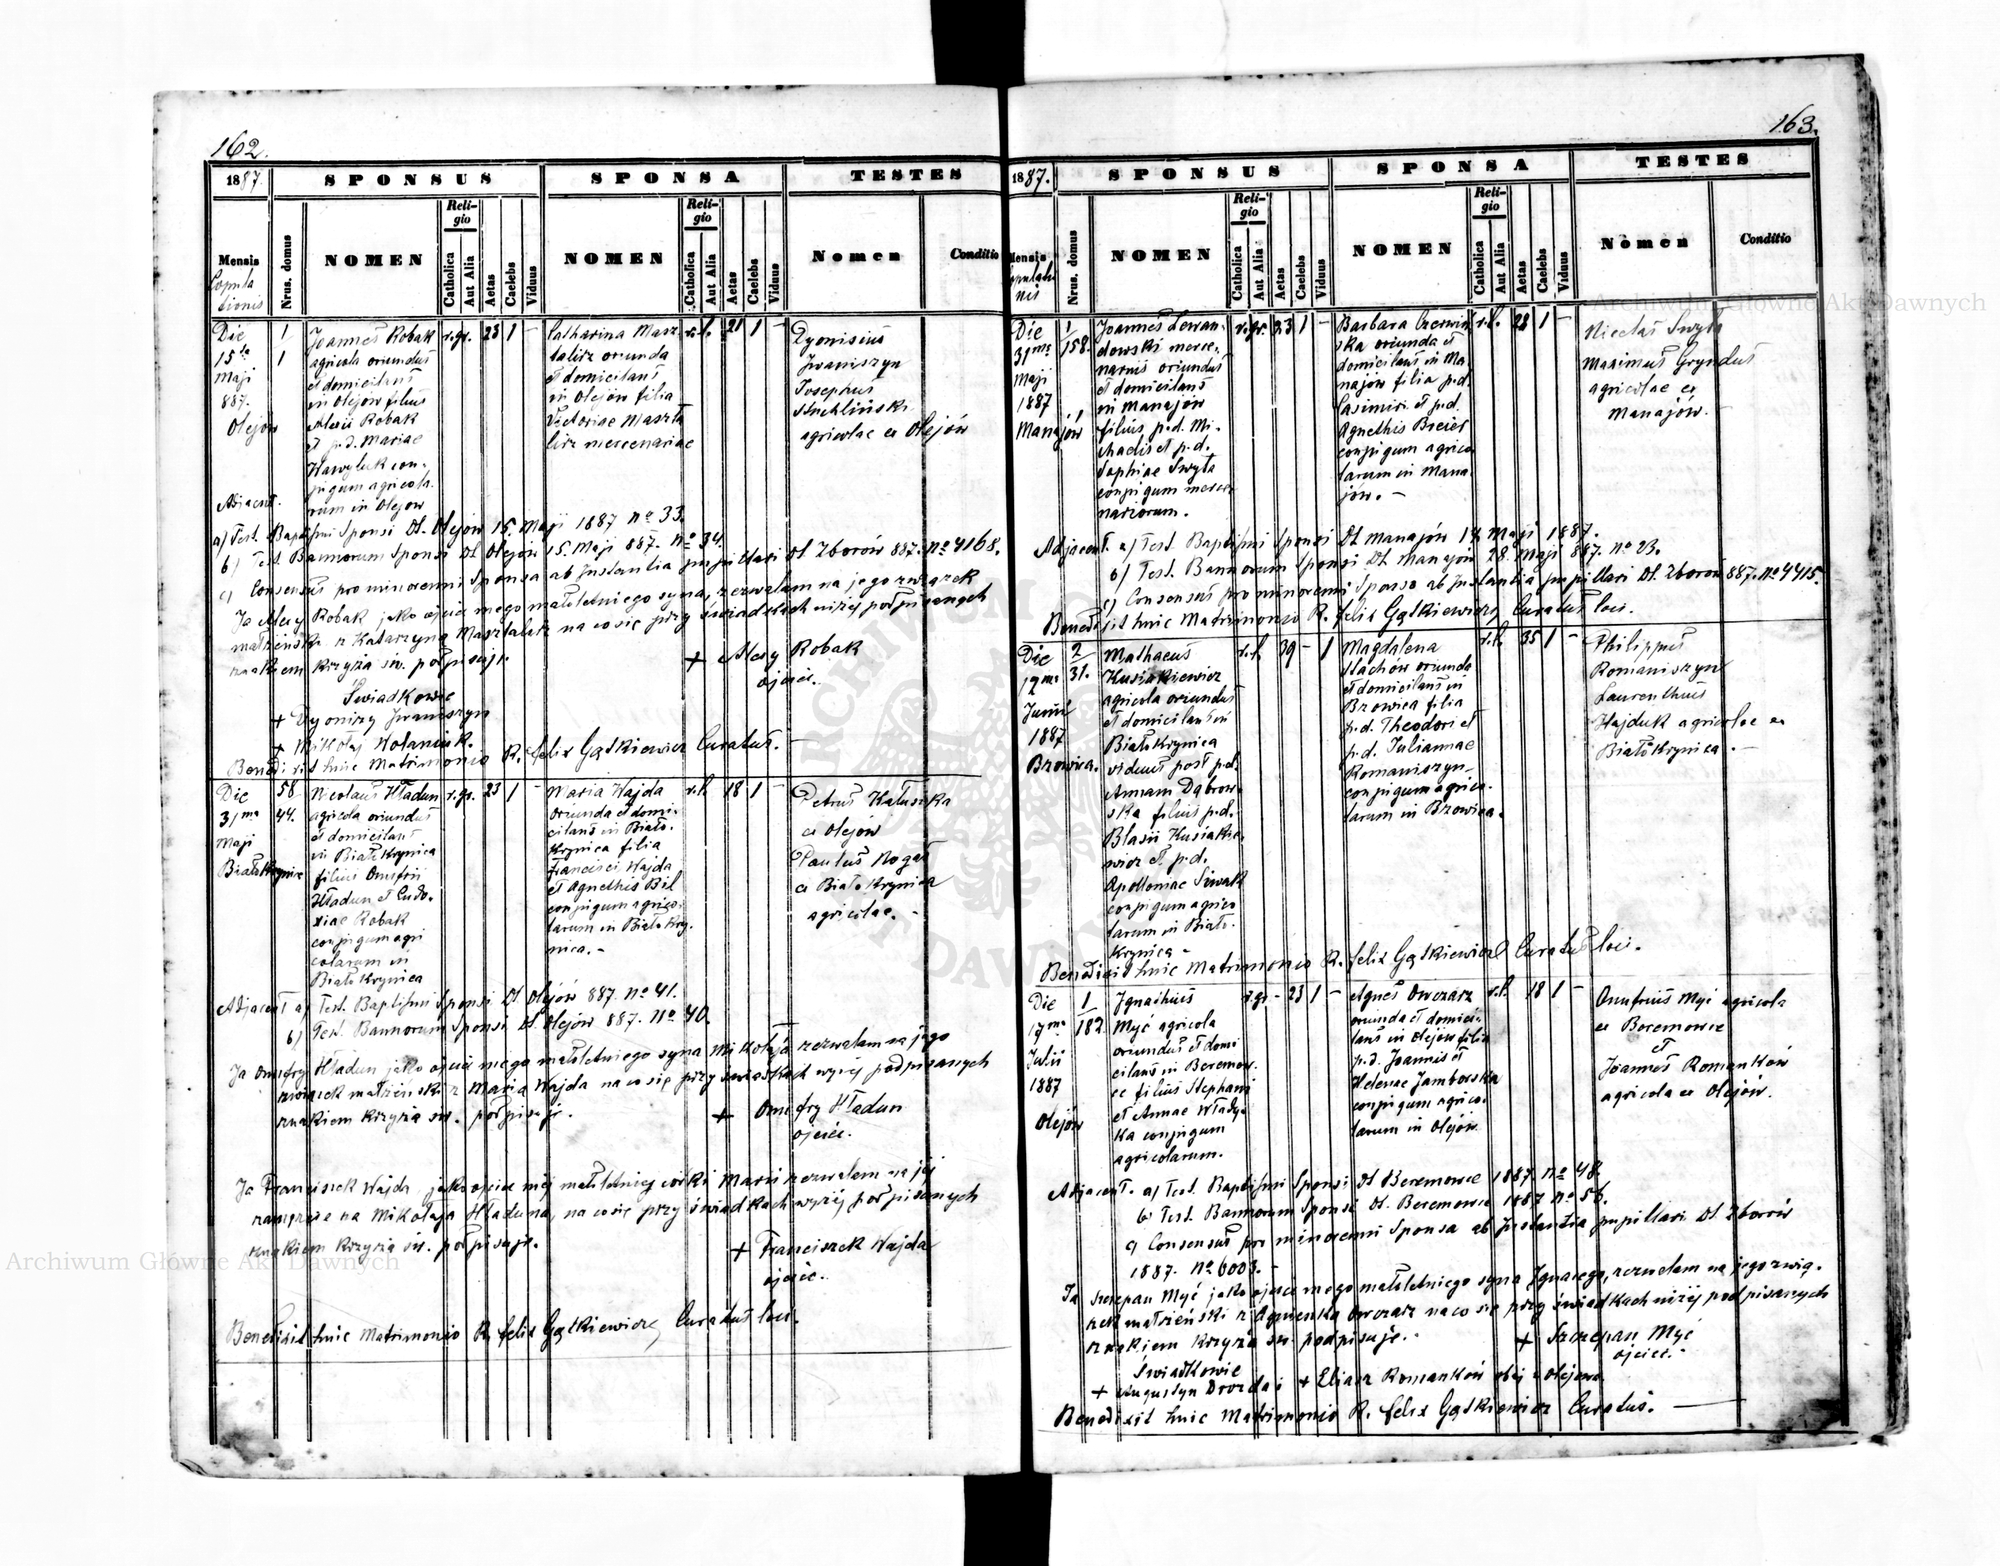 162.
1887.
SPONSUS
SPONSA
TESTES
Mensis
Copula
tionis
Nrus. domus
NOMEN
Religio
Catholica
Aut Alia
Aetas
Caelebs
Viduus
NOMEN
Religio
Catholica
Aut Alia
Aetas
Caelebs
Viduus
Nomen
Conditio
Die
15ta
Maji
887.
Olejów
1
1
Joannes Robak
agricola oriundus
et domicilans
in Olejów filius
Alexii Robak
et p.d. Mariae
Hawryluk con-
jugum agricola-
rum in Olejow
r.gr. 23 1 -
Catharina Masz-
talirz oriunda
et domicilans
in Olejów filia
Victoriae Maszta
lirz mercenariae
r.l. 21 1 -
Dyonisius
Iwaniszyn
Josephus
agricolae ex Olejów
Adjacent.
a) Test. Baptismi Sponsi Dt. Olejów 15. Maji 1887 No 33.
b) Test. Bannorum Sponsi Dt Olejów 15. Maji 887. No 34.
c) Consensus pro minorenni Sponsa ab Instantia pupillari Dt Zborów 887. No 4168.
Ja Alexy Robak jako ojciec mego małoletniego syna, zezwalam na jego związek
małżeński z Katarzyną Masztalirz na co się przy świadkach niżej podpisanych
znakiem krzyża św. podpisuję.
+ Alexy Robak
ojciec.
Świadkowie
+ Dyonizy Iwaniszyn
+ Mikołaj Wolaniuk.
Benedixit huic Matrimonio R. Felix Gątkiewicz Curatus. -
Die
31ma
Maji
Białokrynica
58
44.
Nicolaus Hładun
agricola oriundus
et domicilans
in Białokrynica
filius Onufrii
Hładun et Eudo-
xiae Robak
conjugum agri
colarum in
Białokrynica
r.gr. 23 1 -
Maria Wajda
oriunda et domi-
cilans in Biało-
krynica filia
Francisci Wajda
et Agnethis Bil
conjugum agrico-
larum in Białokry-
nica. -
r.l. 18 1 -
Petrus Kałuszka
ex Olejów
Paulus Rogal
ex Białokrynica
agricolae. -
Adjacent a) Test. Baptismi Sponsi Dt Olejów 887. No 41.
b) Test. Bannorum Sponsi Dt. Olejów 887. No 40.
Ja Onufry Hładun jako ojciec mego małoletniego syna Mikołaja zezwalam na jego
związek małżeński z Maria Wajda na co się przy świadkach wyżej podpisanych
znakiem krzyża św. podpisuję.
+ Onufry Hładun
ojciec.
Ja Franciszek Wajda jako ojciec mej małoletniej córki Marii zezwalam na jej
zamęście na Mikołaja Hładuna, na co się przy świadkach wyżej podpisanych
znakiem krzyża św. podpisuję.
+ Franciszek Wajda
ojciec.
Benedixit huic Matrimonio R. Felix Gątkiewicz, Curatus loci.
163.
1887.
SPONSUS
SPONSA
TESTES
Mensis
Copulatio
nis
Nrus. domus
NOMEN
Religio
Catholica
Aut Alia
Aetas
Caelebs
Viduus
NOMEN
Religio
Catholica
Aut Alia
Aetas
Caelebs
Viduus
Nomen
Conditio
Die
31ma
Maji
1887
Manajów
1
158.
Joannes Lewan-
dowski merce-
narius oriundus
et domicilans
in Manajów
filius p.d. Mi-
chaelis et p.d.
Sophiae Swyta
conjugum merce
nariorum.
r.gr. 23 1 -
Barbara Czerwiń
ska oriunda et
domicilans in Ma-
najów filia p.d.
Casimiri et p.d.
Agnethis Bieier
conjugum agrico
larum in Mana-
jów. -
r.l. 22 1 -
Nicolas Swyta
Maximus Gryndus
agricolae ex
Manajów.
Adjacent. a) Test. Baptismi Sponsi Dt Manajów 14 Maji 1887.
b) Test. Bannorum Sponsi Dt Manajów 28. Maji 887. No 23.
c) Consensus pro minorenni Sponsa ab Instantia pupillari Dt. Zborów 887. No 4415.
Benedixit huic Matrimonio R. Felix Gątkiewicz, Curatus loci.
Die
12ma
Junii
1887
Bzowica.
2
31.
Mathaeus
Kusiakiewicz
agricola oriundus
et domicilans in
Białokrynica
viduus post p.d.
Annam Dąbrow-
ska filius p.d.
Blasii Kusiakie-
wicz et p.d.
Apolloniae Siwak
conjugum agrico
larum in Biało-
krynica -
r.l. 39 - 1
Magdalena
Stachów oriunda
et domicilans in
Bzowica filia
p.d. Theodori et
p.d. Juliannae
Romaniszyn
conjugum agrico-
larum in Bzowica.
r.l. 35 1 -
Philippus
Romaniszyn
Laurenthius
Hajduk agricolae ex
Białokrynica. -
Benedixit huic Matrimonio R. Felix Gątkiewicz Curatus loci.
Die
17ma
Julii
1887
Olejów
1
182
Ignathius
Myć agricola
oriundus et domi
cilans in Beremow-
ce filius Stephani
et Annae Włady-
ka conjugum
agricolarum.
r.gr. - 23 1 -
Agnes Owczarz
oriunda et domici-
lans in Olejów filia
p.d. Joannis et
Helenae Jamborska
conjugum agrico-
larum in Olejów
r.l. 18 1 -
Onufrius Myć agricola
ex Beremowce
et
Joannes Romanków
agricola ex Olejów.
Adjacent. a) Test. Baptismi Sponsi Dt Beremowce 1887. No 48.
b) Test. Bannorum Sponsi Dt. Beremowce 1887 No 56.
c) Consensus pro minorenni Sponsa ab Instantia pupillari Dt. Zborów
1887. No 6003. -
Ja Szczepan Myć jako ojciec mego małoletniego syna Ignacego, zezwalam na jego zwią-
zek małżeński z Agnieszką Owczarz na co się przy świadkach niżej podpisanych
znakiem krzyża św. podpisuje.
+ Szczepan Myć
ojciec. -
Świadkowie
+ Augustyn Drozda i + Eliasz Romanków obaj z Olejowa.
Benedixit huic Matrimonio R. Felix Gątkiewicz Curatus.
Archiwum Główne Akt Dawnych
Archiwum Główne Akt Dawnych